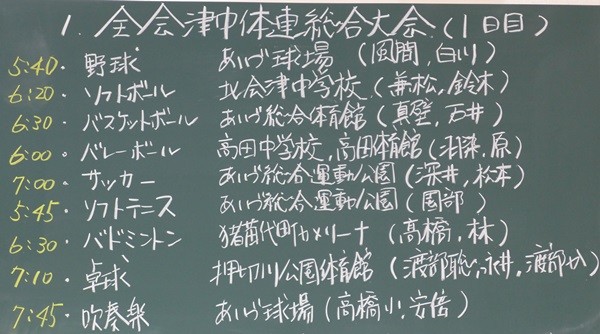 1. 全会津中体連総合大会(1日目)
5:40・野球 あいづ球場 (風間,白川)
6:20・ソフトボール 北会津中学校(兼松,鈴木)
6:30・バスケットボール あいづ総合体育館(真壁,石井)
6:00・バレーボール 高田中学校,高田体育館(羽染,原)
7:00・サッカー あいづ総合運動公園(深井,松本)
5:45・ソフトテニス あいづ総合運動公園(園部)
6:30・バドミントン 猪苗代町カメリーナ(高橋,林)
7:10・卓球 押切川公園体育館(渡部聡,永井,渡部か)
7:45・吹奏楽 あいづ球場(高橋小,安倍)